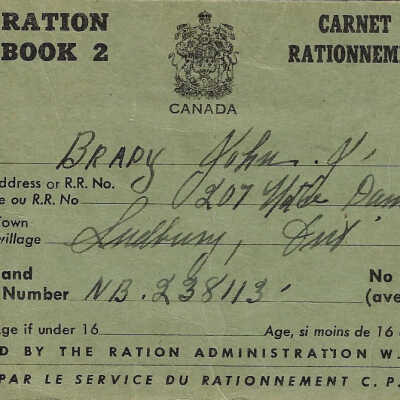 RATION CARNET
BOOK 2 RATIONNEM
CANADA
Brady John. J.
ddress or R.R. No.
e ou R.R. No 207 Notre Dam
Town
village Sudbury, Ont
and No
Number NB. 238113 (ave
Age if under 16 Age, si moins de 16
D BY THE RATION ADMINISTRATION W.
PAR LE SERVICE DU RATIONNEMENT C. P.